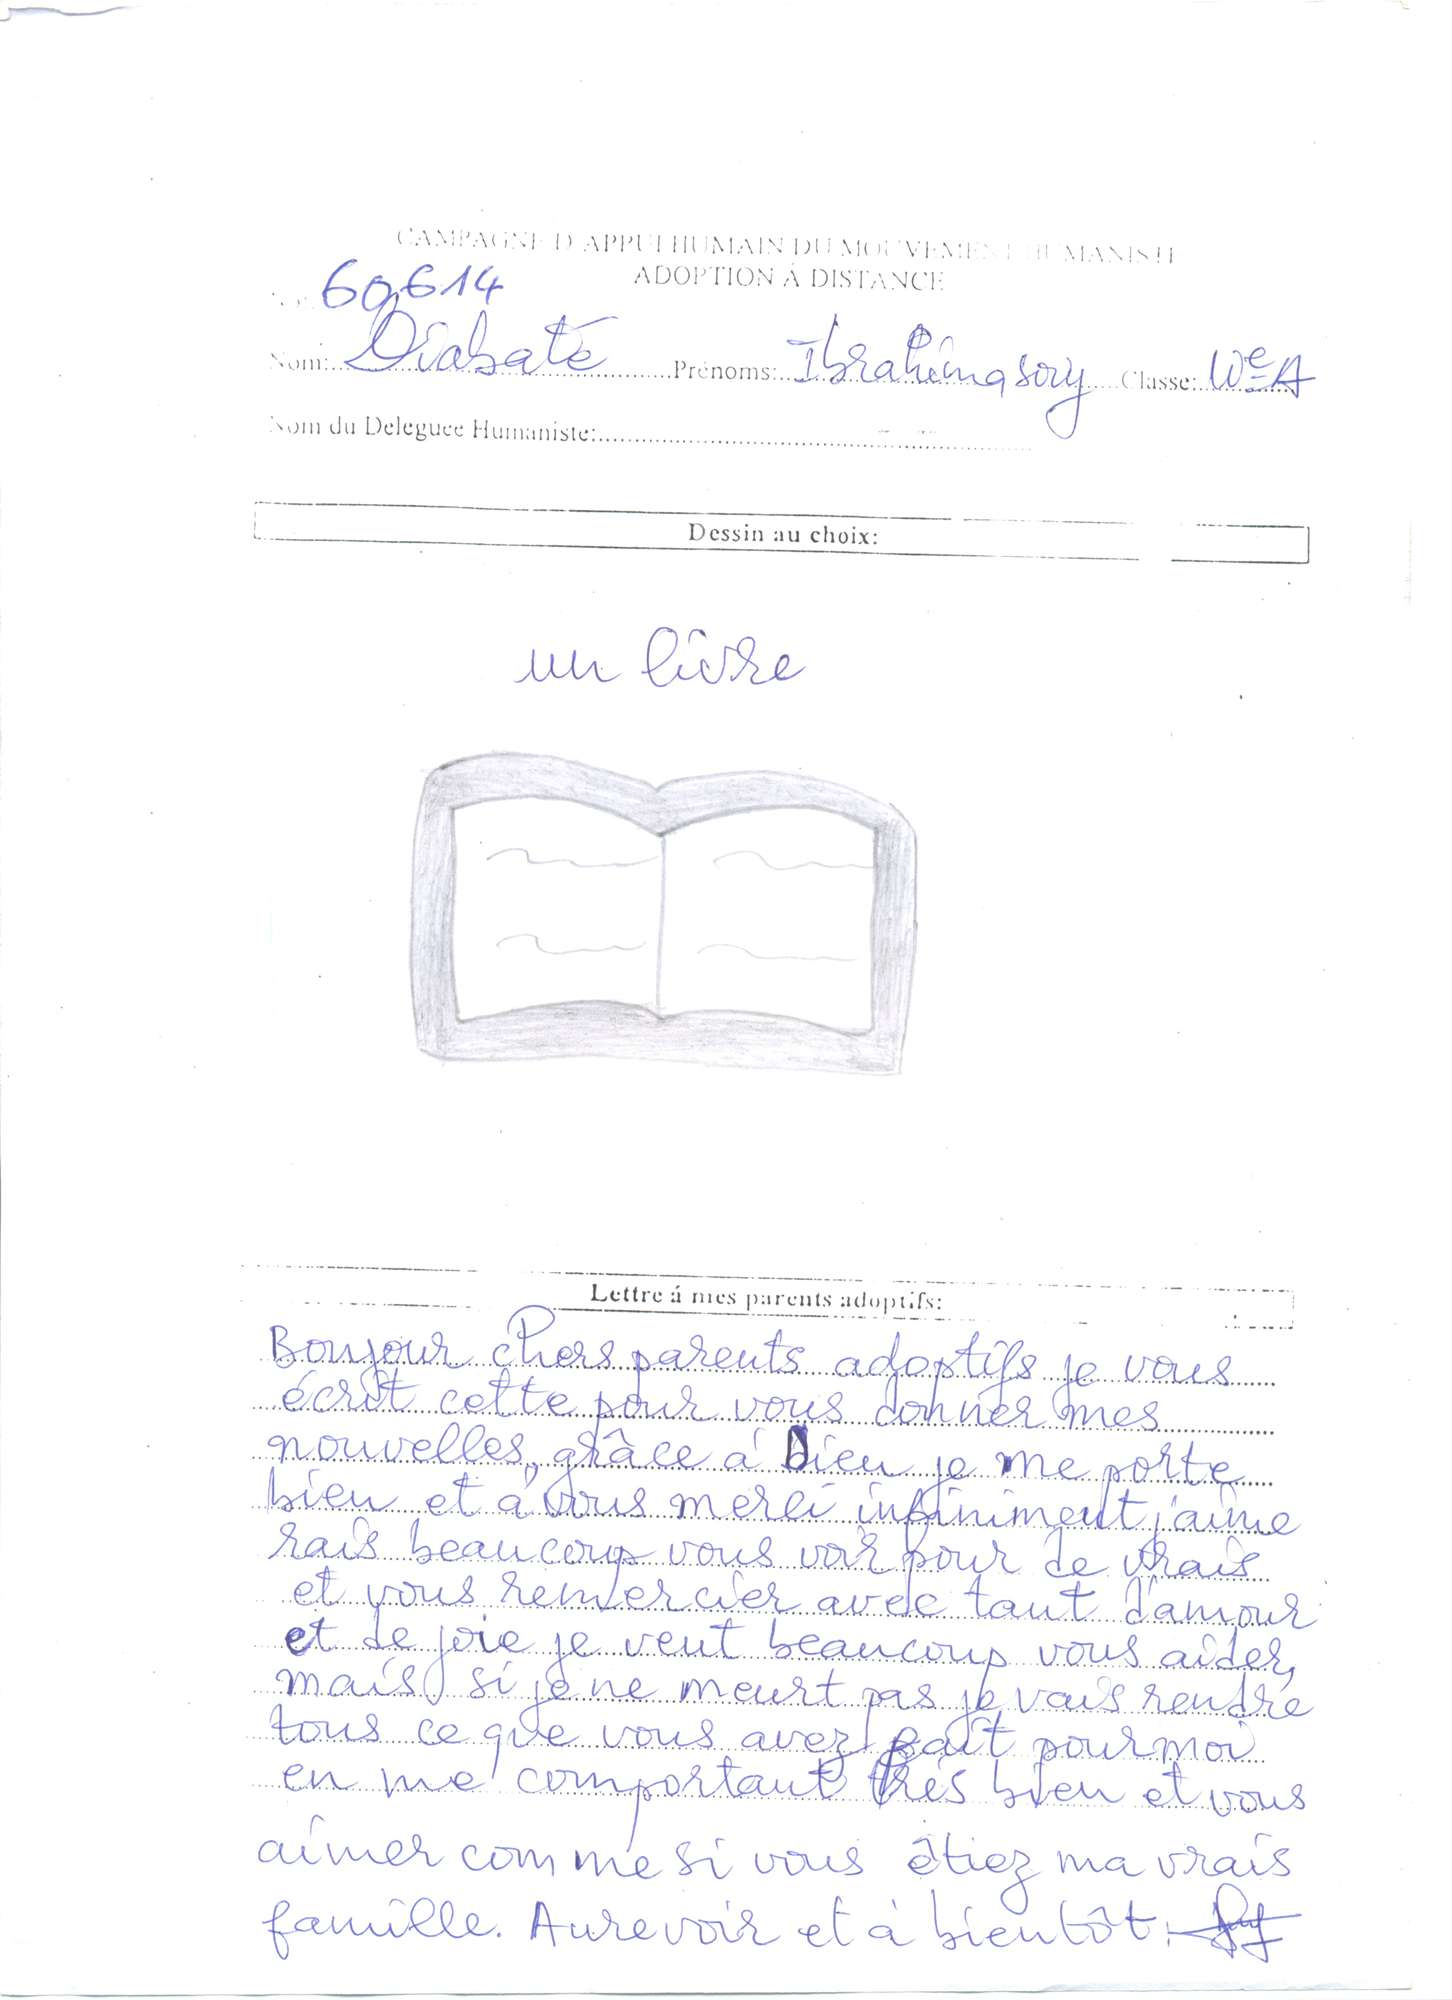 CAMPAGNE D'APPUI HUMAIN DU MOUVEMENT HUMANISTE
ADOPTION Á DISTANCE
60614
Nom: Diabaté Prénoms: Ibrahima sory Classe: 10e A
Nom du Deleguee Humaniste:
Dessin au choix:
un livre
Lettre á mes parents adoptifs:
Bonjour chers parents adoptifs je vous
écrit cette pour vous donner mes
nouvelles, grâce à Dieu je me porte
bien et à vous merci infiniment j'aime
rais beaucoup vous voir pour de vrais
et vous remercier avec tant d'amour
et de joie je veut beaucoup vous aider,
mais si je ne meurt pas je vais rendre
tous ce que vous avez faît pour moi
en me comportant très bien et vous
aimer comme si vous êtiez ma vrais
famille. Aurevoir et à bientôt.